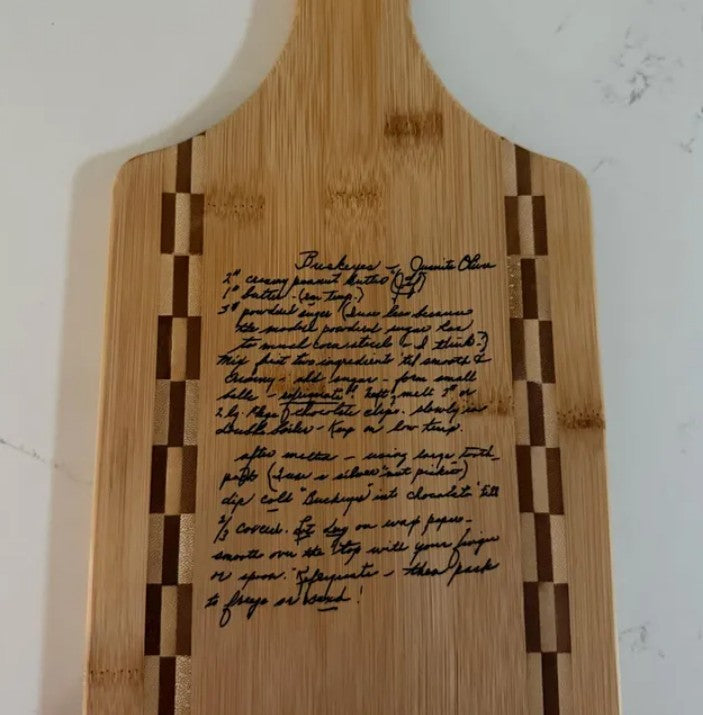 Buckeyes - Juanita Oliver
2# creamy peanut butter (Jif)
1# butter - (rm temp.)
3# powdered sugar (I use less because
the modern powdered sugar has
to much cornstarch - I think?)
Mix first two ingredients 'til smooth &
creamy - add sugar - form small
balls - refrigerate. Next, melt 2# or
2 lg. pkgs of chocolate chips. slowly in
double boiler - Keep on low temp.
after melted - using large tooth-
pick (I use a silver "nut picker")
dip cold "Buckeyes" into chocolate 'till
2/3 covered. Let dry on wax paper -
smooth over the top with your finger
or spoon. Refrigerate - then pack
to freeze or send!